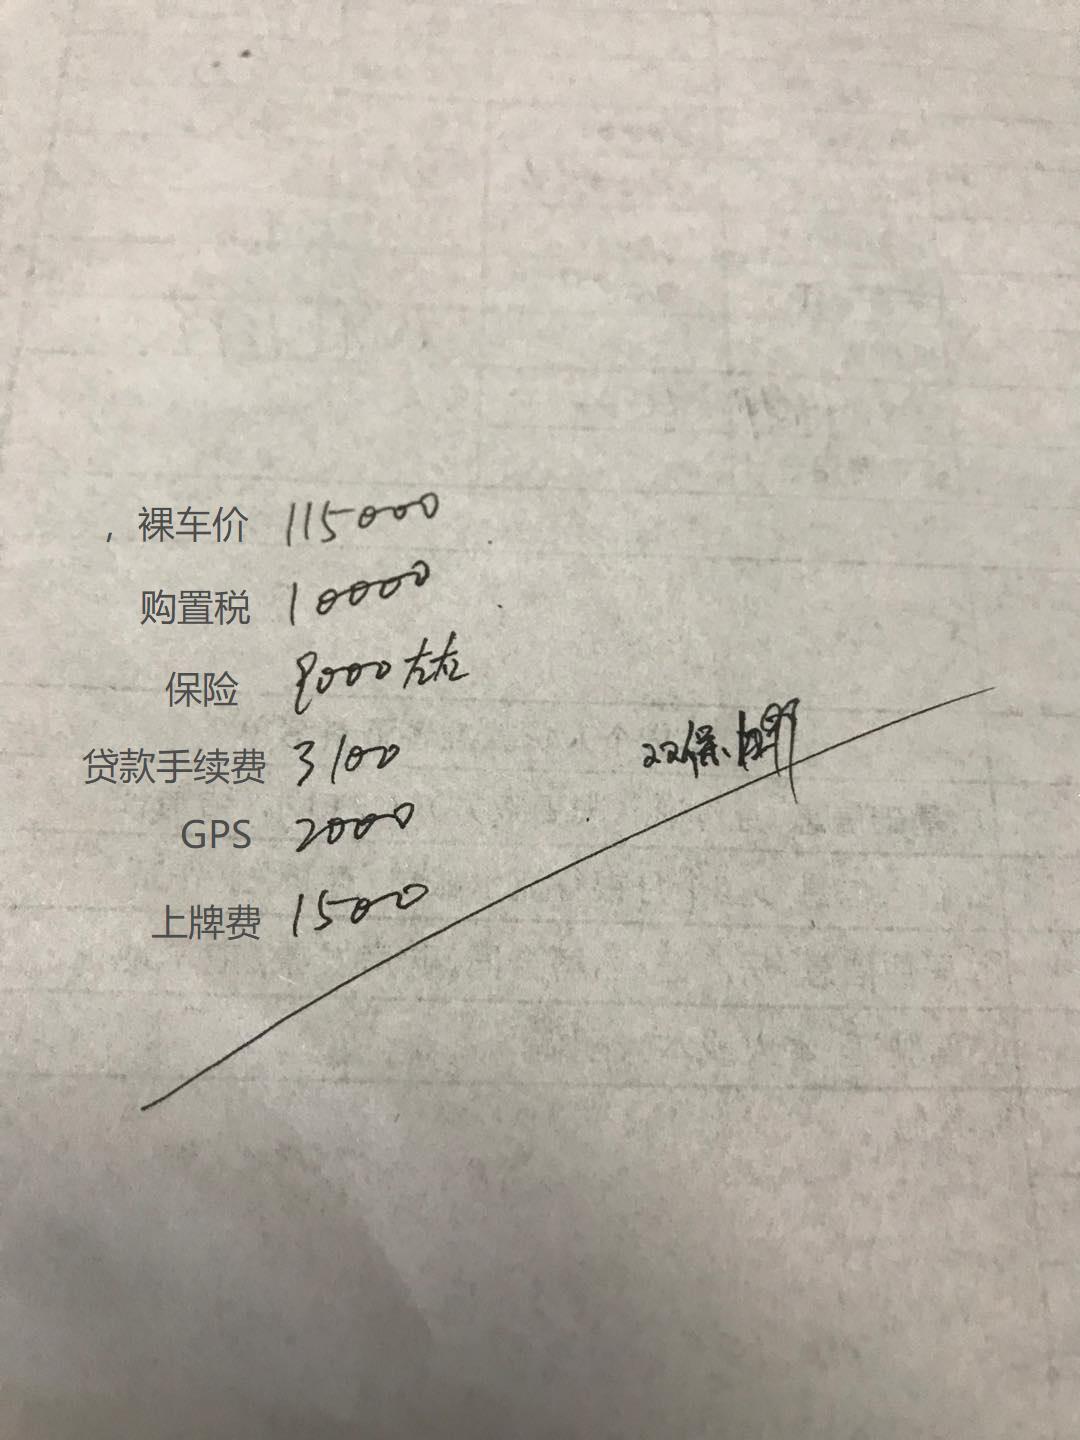 ，裸车价 115000
购置税 10000
保险 8000左右
贷款手续费 3100
GPS 2000
上牌费 1500